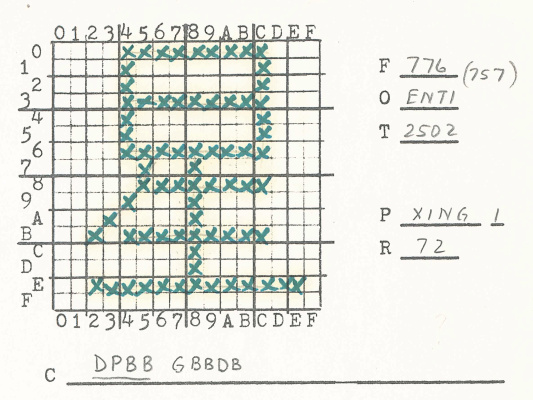 0 1 2 3 4 5 6 7 8 9 A B C D E F
0
1
2
3
4
5
6
7
8
9
A
B
C
D
E
F
0 1 2 3 4 5 6 7 8 9 A B C D E F
F 776 (757)
O ENT1
T 2502
P XING 1
R 72
C DPBB GBBDB